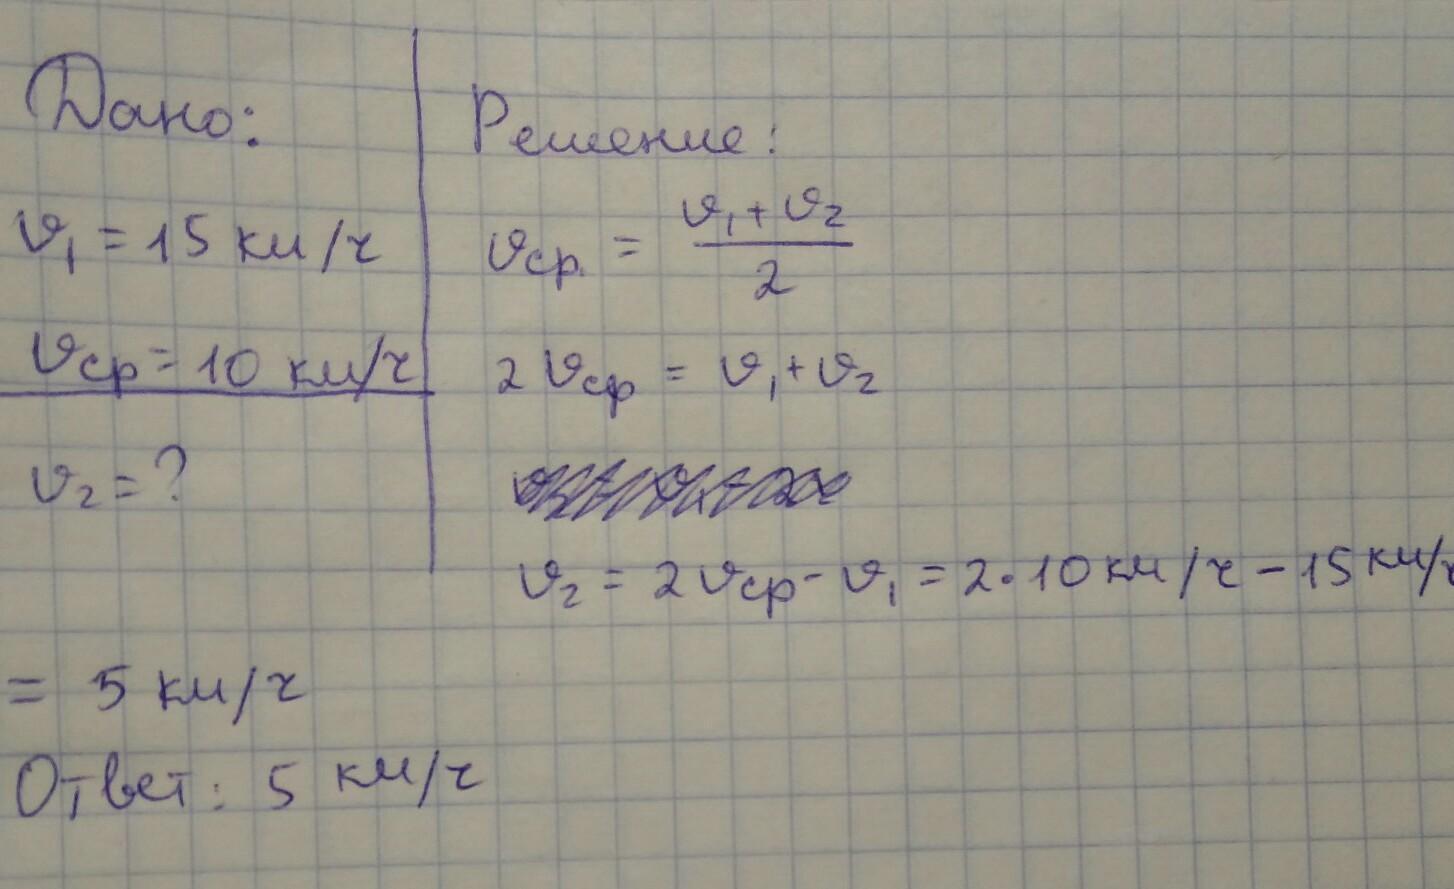 Дано:
υ₁ = 15 км/ч
υср = 10 км/ч
υ₂ = ?
Решение:
υср. = (υ₁ + υ₂)/2
2 υср = υ₁ + υ₂
υ₂ = 2 υср - υ₁ = 2 · 10 км/ч - 15 км/ч
= 5 км/ч
Ответ: 5 км/ч